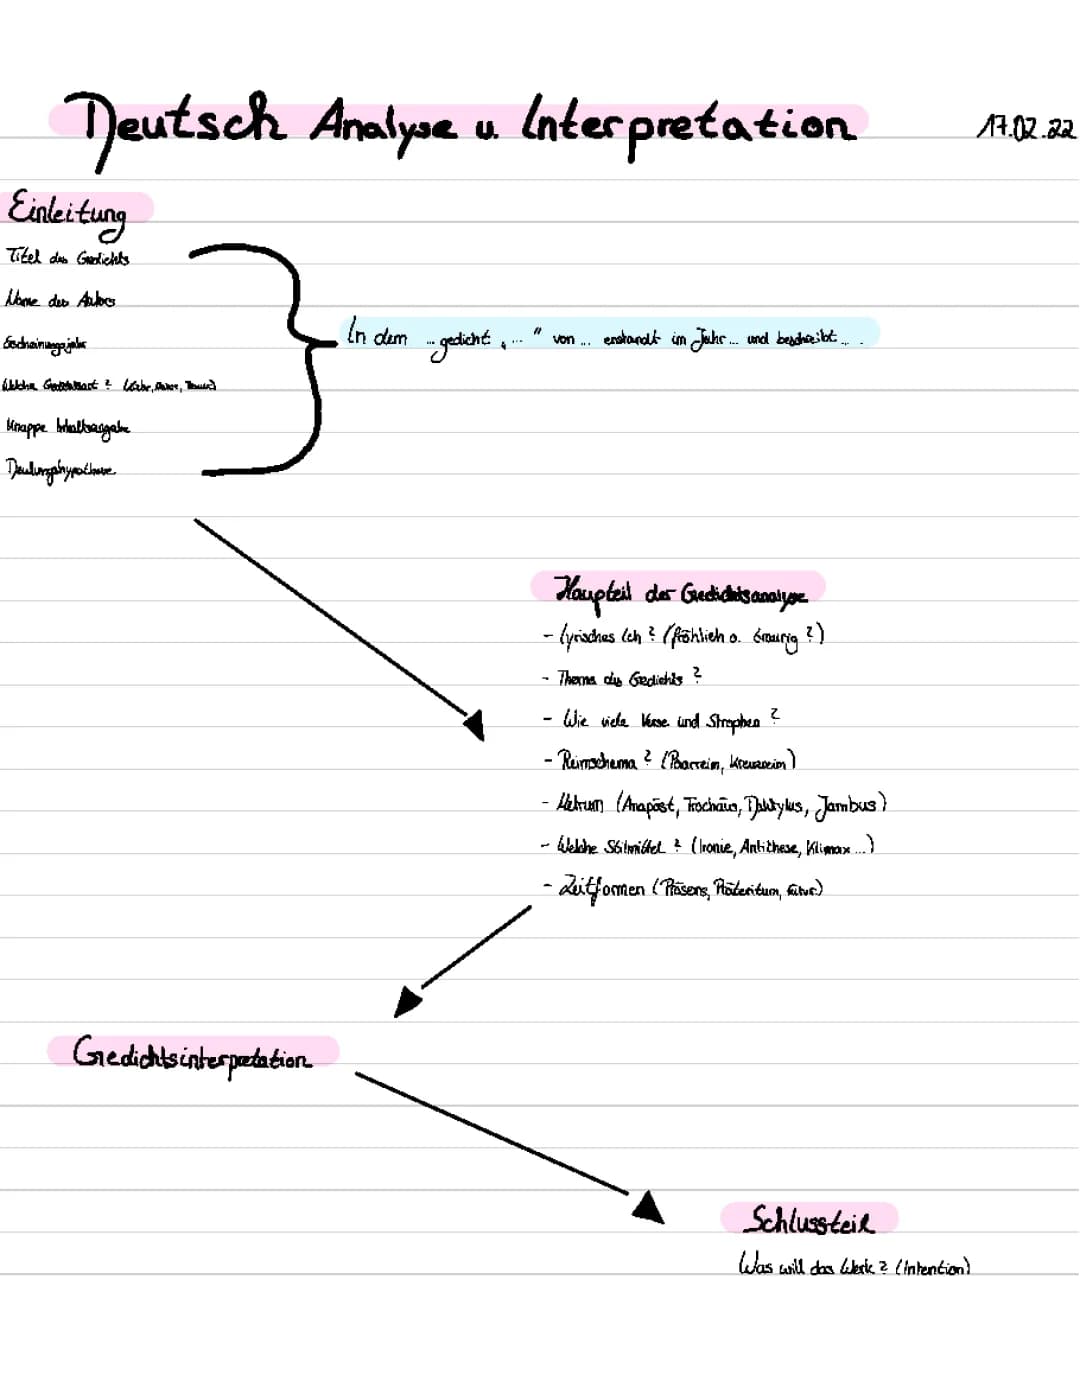 Deutsch Analyse u. Interpretation
17.02.22
Einleitung
Titel des Gedichts
Name des Autors
Erscheinungsjahr
Welche Gedichtsart ? (Liebe, Natur, Trauer)
Knappe Inhaltsangabe
Deutungshypothese
In dem ... gedicht „ ... “ von ... enstandt im Jahr ... und beschreibt ... .
Haupteil der Gedichtsanalyse
- lyrisches Ich ? (fröhlich o. traurig ?)
- Thema des Gedichts ?
- Wie viele Verse und Strophen ?
- Reimschema ? (Paarreim, Kreuzreim)
- Metrum (Anapäst, Trochäus, Daktylus, Jambus)
- Welche Stilmittel ? (Ironie, Antithese, Klimax ...)
- Zeitformen (Präsens, Präteritum, Futur)
Gedichtsinterpretation
Schlussteil
Was will das Werk ? (Intention)